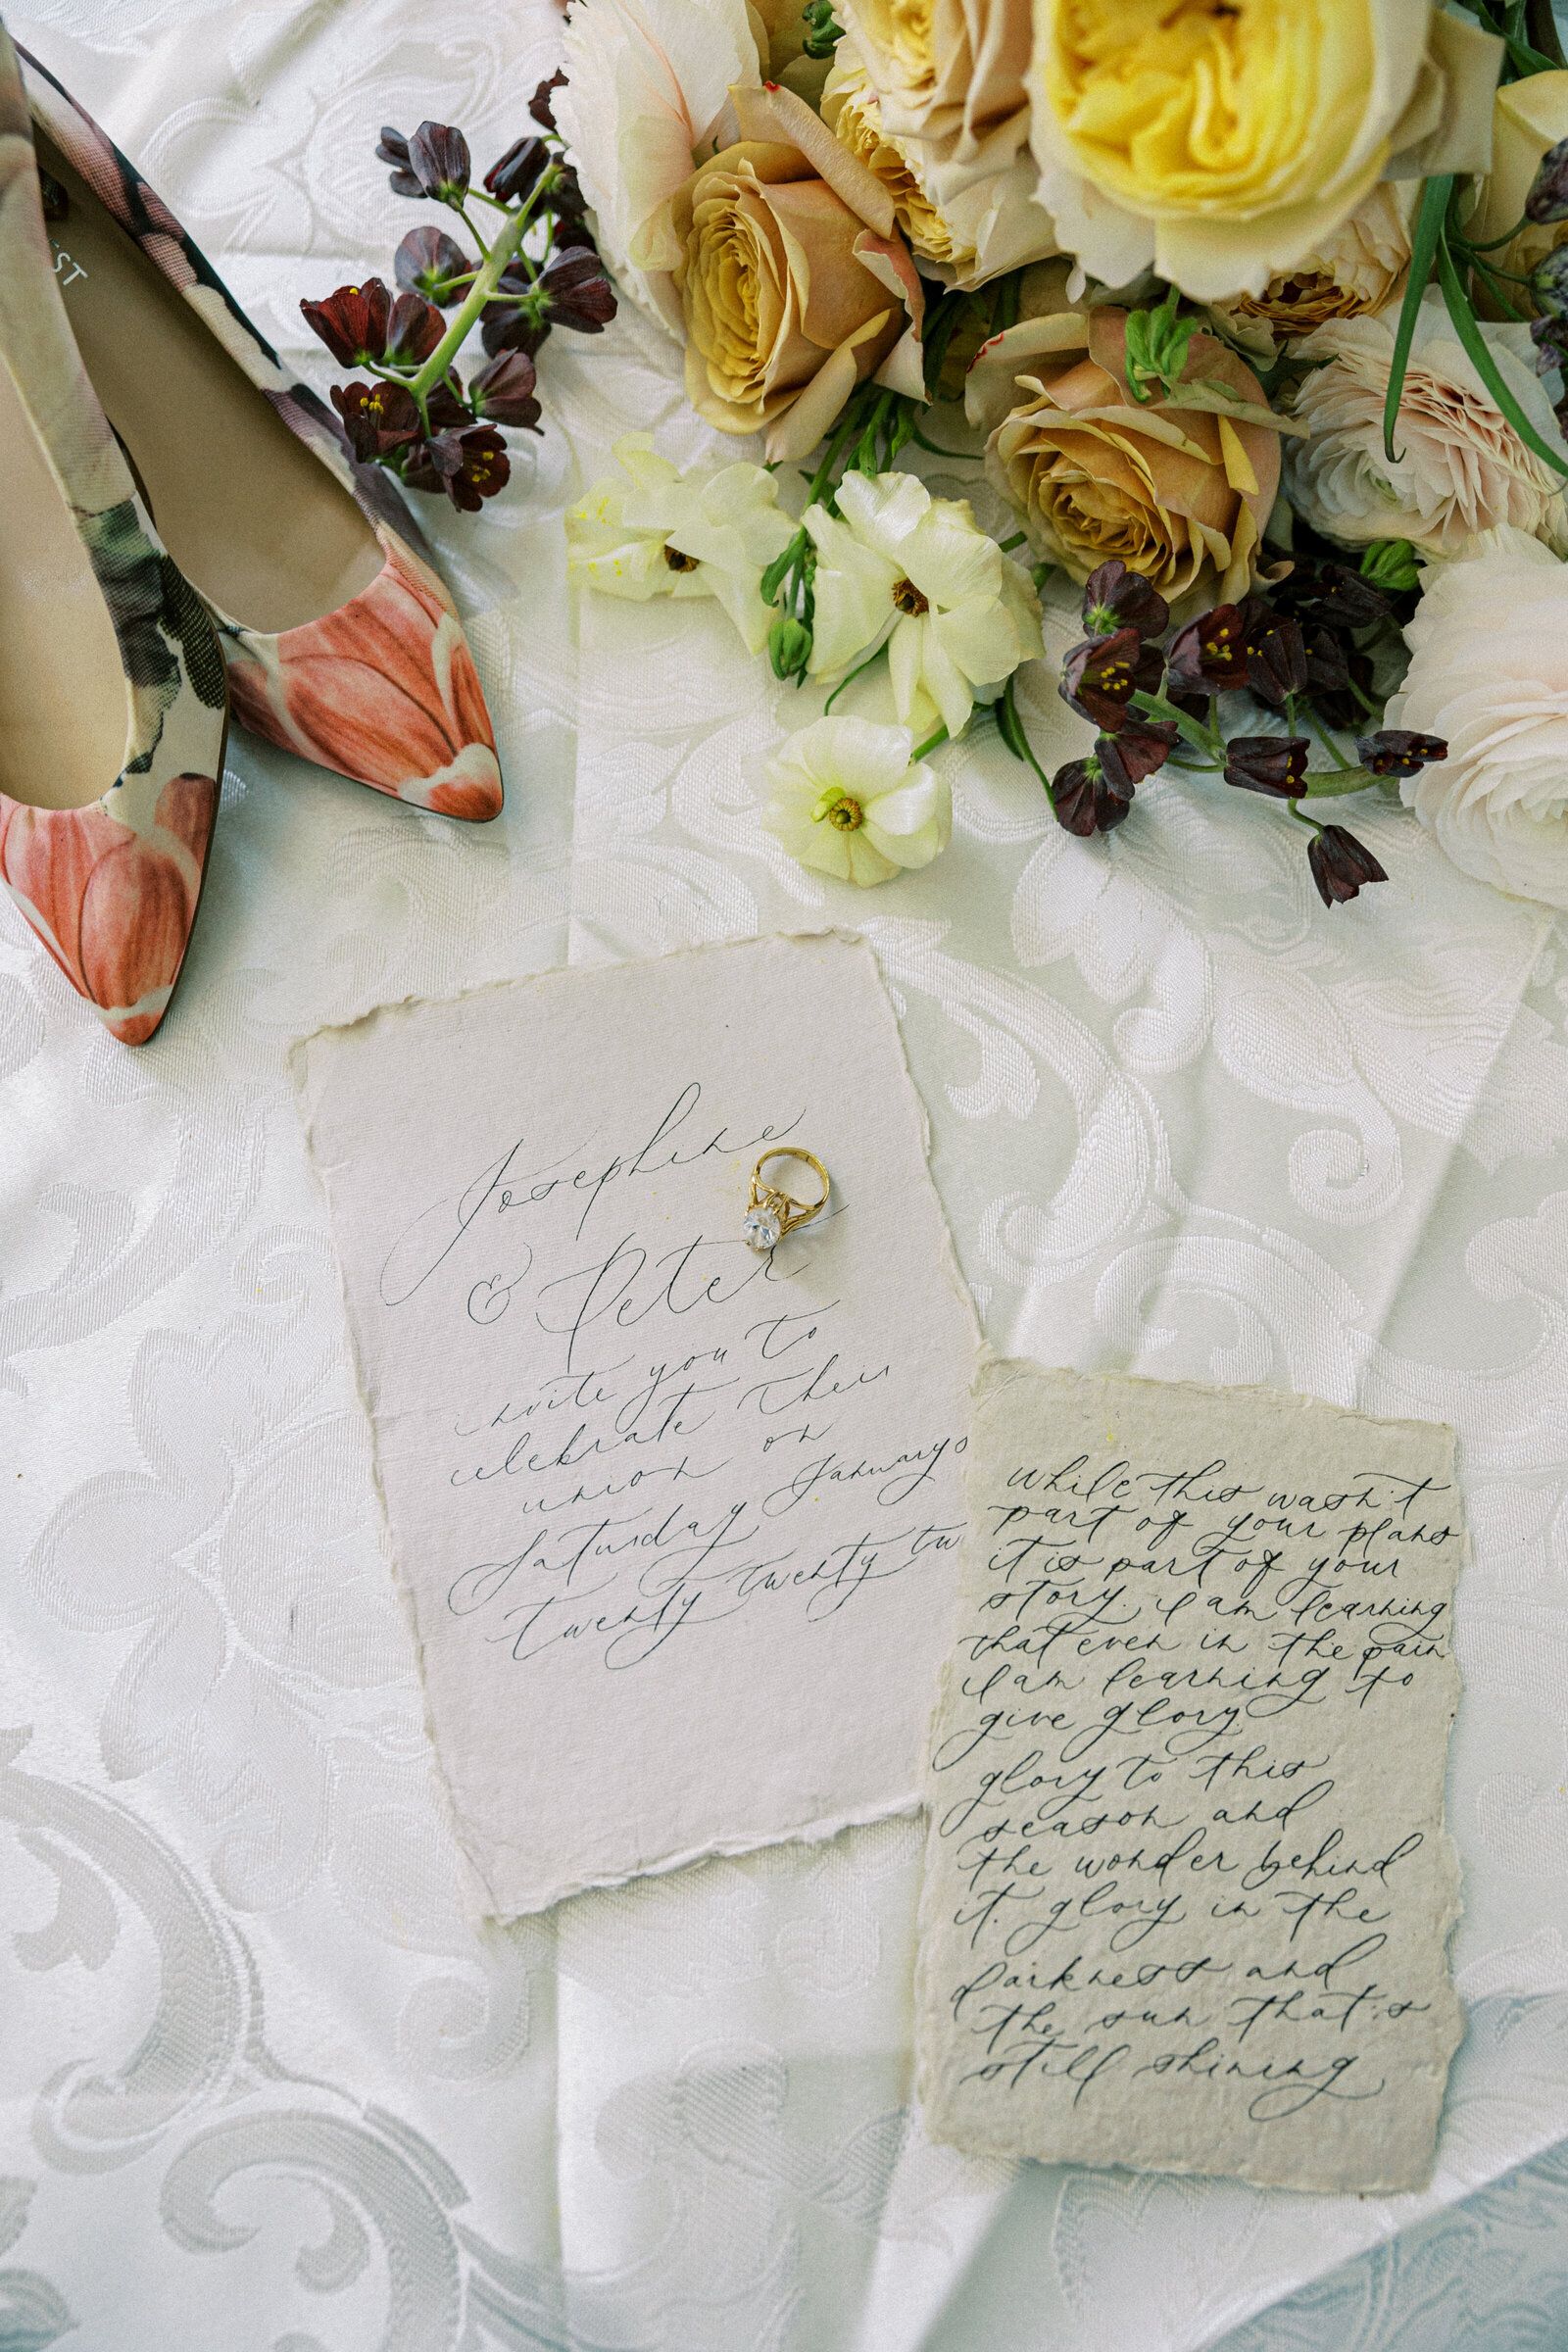 ST
Josephine
& Peter
invite you to
celebrate their
union on
Saturday January
twenty twenty
while this wasn't
part of your plans
it is part of your
story. I am learning
that even in the pain
I am learning to
give glory.
glory to this
season and
the wonder behind
it. glory in the
darkness and
the sun that's
still shining